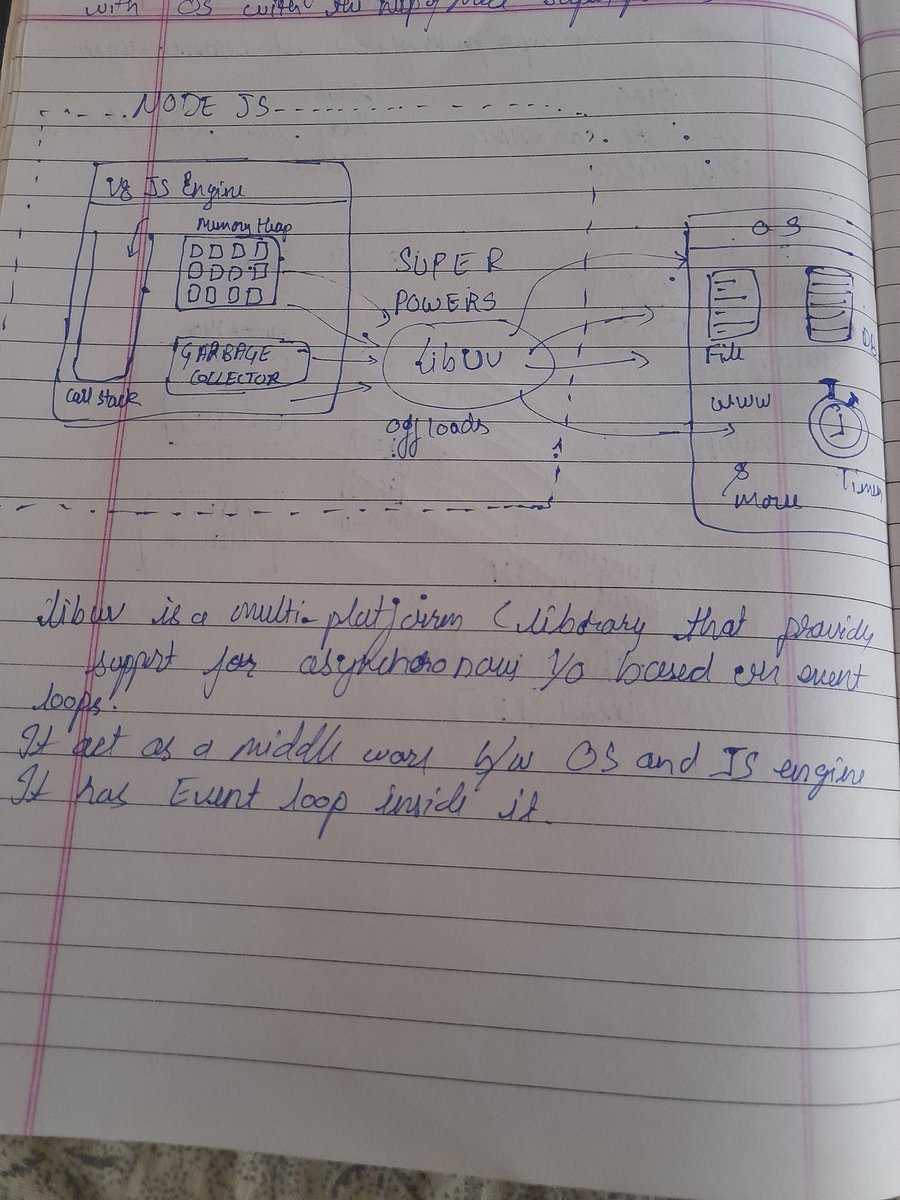 with OS with the help of
NODE JS
V8 JS Engine
Memory Heap
GARBAGE
COLLECTOR
Call stack
SUPER
POWERS
LibUV
Off loads
OS
File
DB
WWW
Timer
& more
libuv is a multi-platform C library that provides
support for asynchoronous I/O based on event
loops.
It act as a middle ware b/w OS and JS engine
It has Event loop inside it.